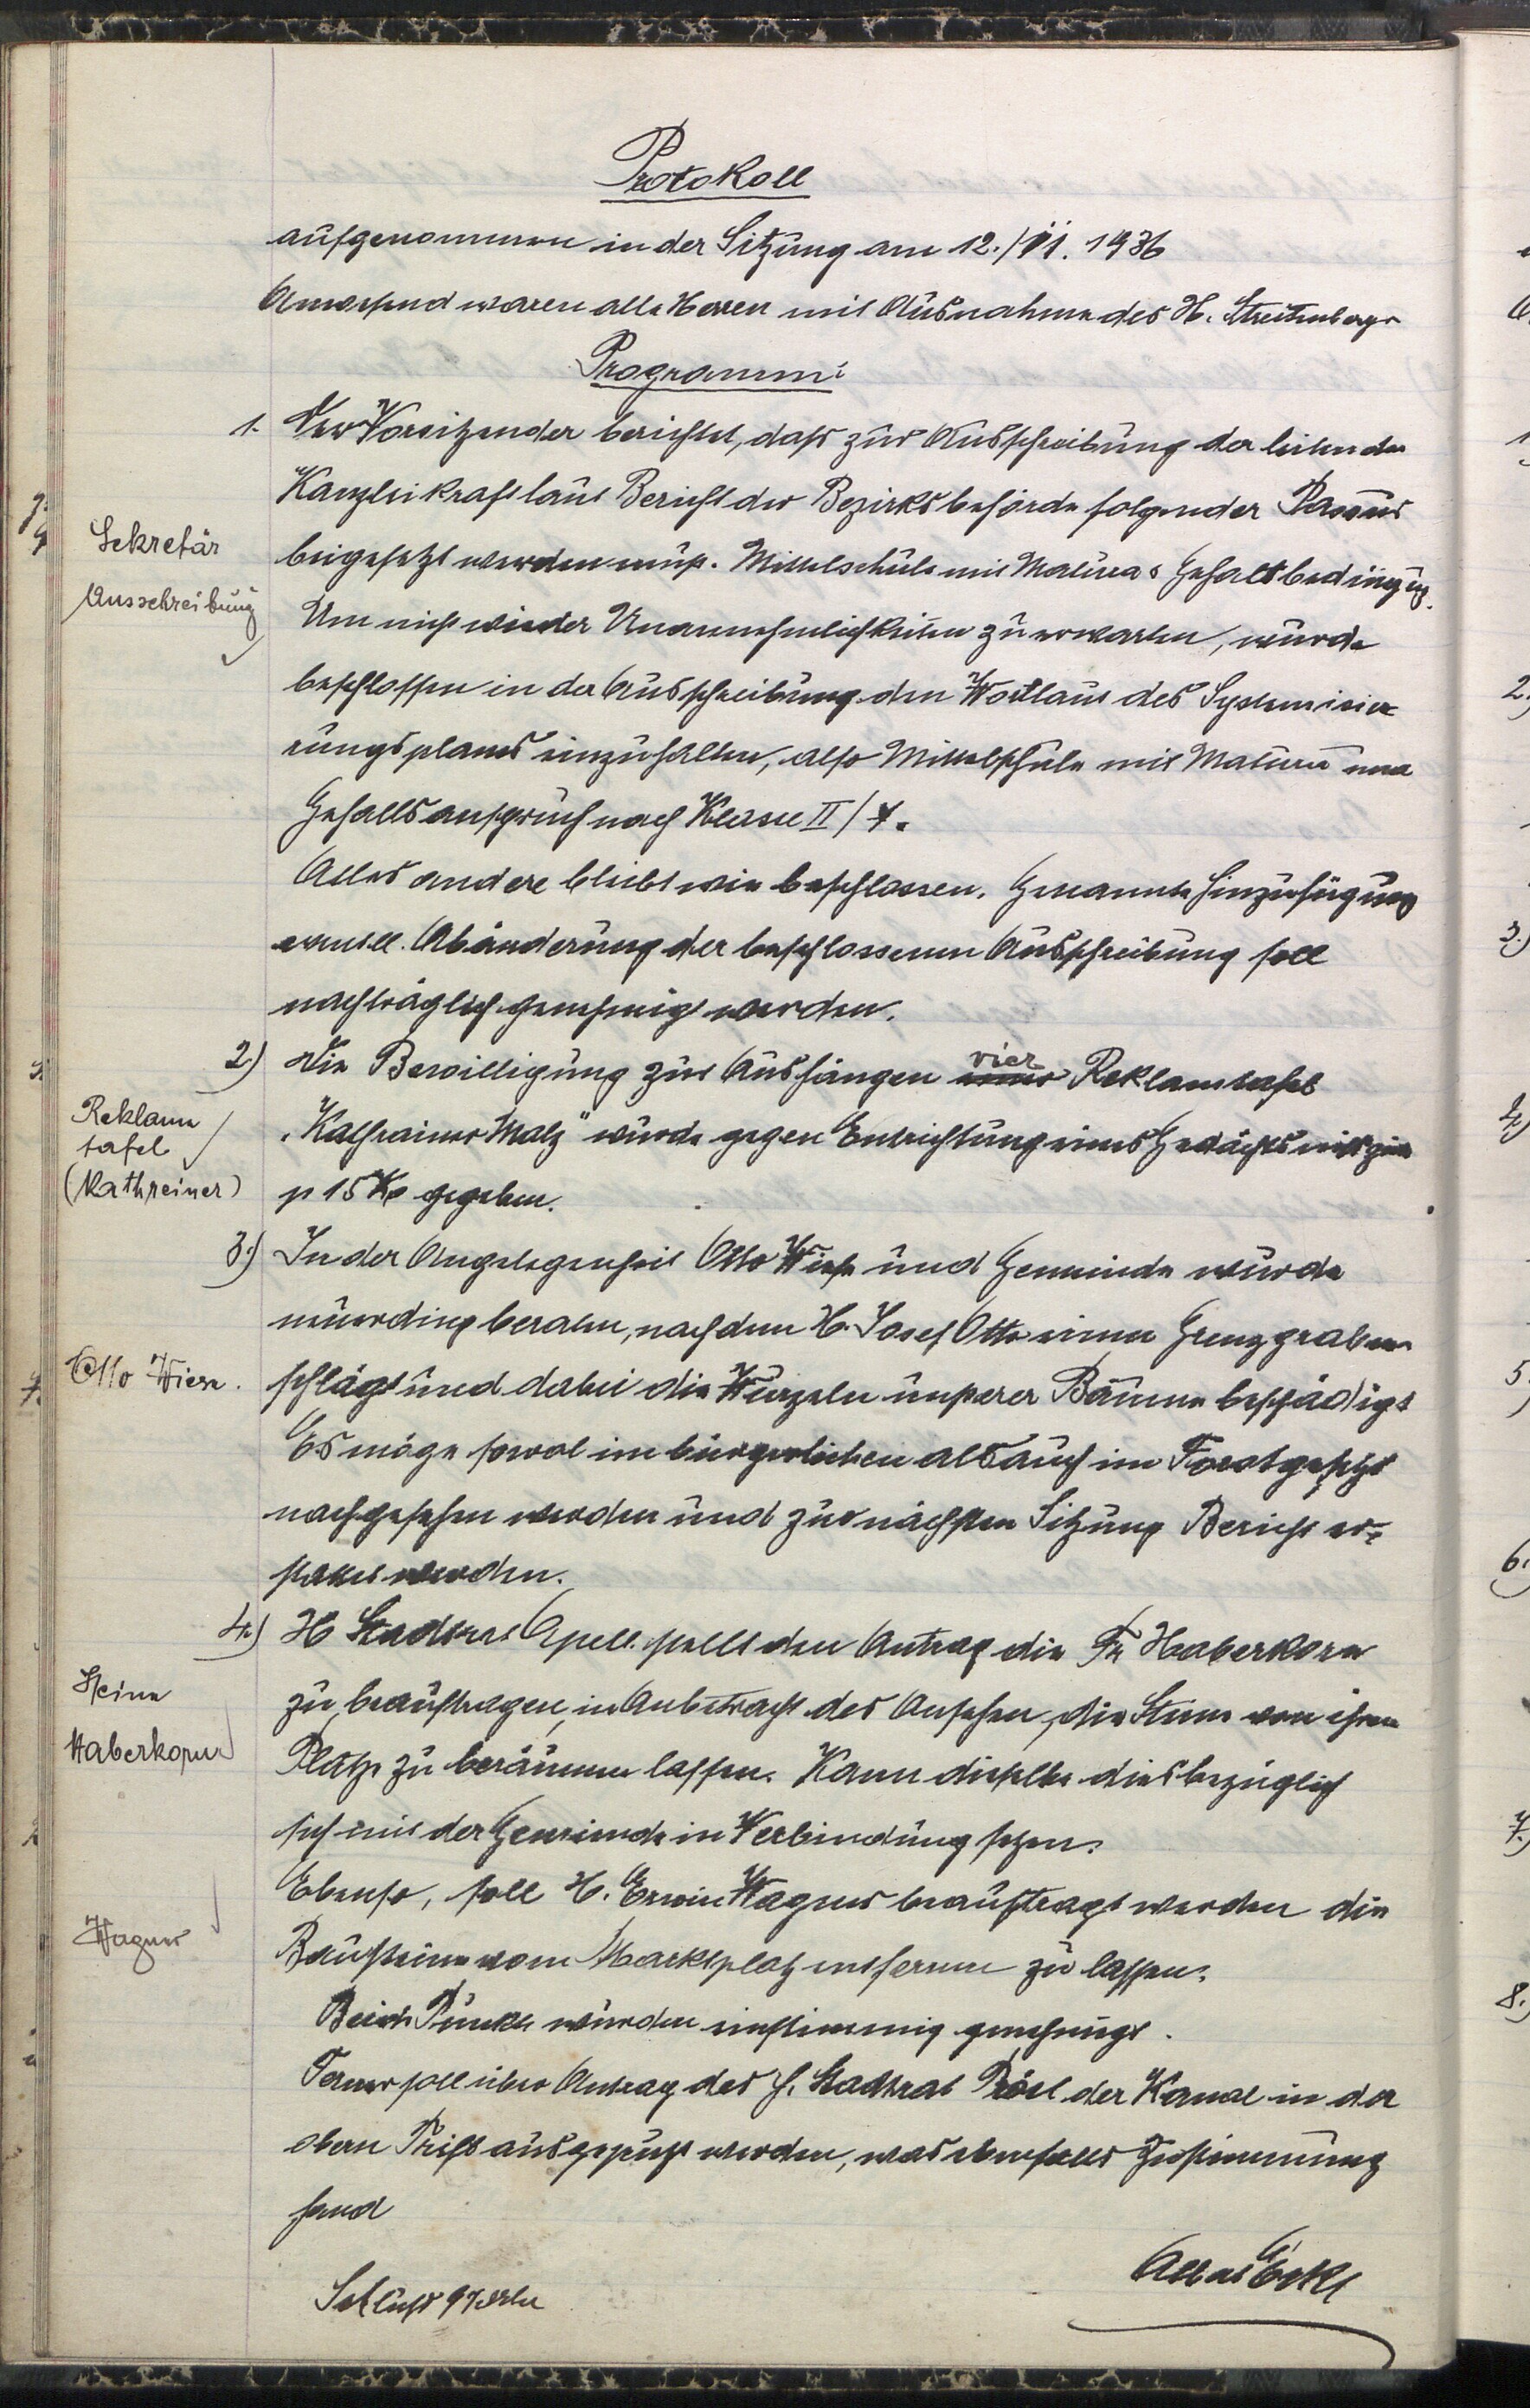 Protokoll
aufgenommen in der Sitzung am 12./11. 1936
Anwesend waren alle Herren mit Ausnahme des H. Streitenberger
Programm:
1. Der Vorsitzender berichtet, daß zur Ausschreibung der leitenden
Kanzleikraft laut Bericht der Bezirksbehörde folgender Passus
Sekretär
beigesetzt werden muß. Mittelschule mit Matura & Gehaltbedingung.
Ausschreibung
Um nicht wieder Unannehmlichkeiten zu erwarten, wurde
beschlossen in der Ausschreibung den Wortlaut des Systemisie-
rungsplanes einzuhalten, also Mittelschule mit Matura und
Gehaltsanspruch nach Klasse II/4.
Alles andere bleibt wie beschlossen. Genannte Hinzufügung
eventl. Abänderung der beschlossenen Ausschreibung soll
nachträglich genehmigt werden.
2.) Die Bewilligung zur Aushängen vier Reklametafel
Reklame
tafel
(Kathreiner)
"Kathreiner Malz" wurde gegen Entrichtung eines Gedächtniszins
p 15 Kč gegeben.
3.) In der Angelegenheit Otto Wiese und Gemeinde wurde
neuerding beraten, nachdem H. Josef Otto einen Grenzgraben
Otto Wiese.
schlägt und dabei die Wurzeln unserer Bäume beschädigt
Es möge sowol im bürgerlichen als auch im Forstgesetze
nachgesehen werden und zur nächsten Sitzung Bericht er-
stattet werden.
4.) H Stadtrat Apell stellt den Antrag die Fr Haberkorn
Steine
Haberkorn
zu beauftragen, in Anbetracht des Ansehen, die Steine von ihrem
Platze zu beräumen lassen. Kann dieselbe diesbezüglich
sich mit der Gemeinde in Verbindung setzen.
Ebenso, soll H. Erwin Wagner beauftragt werden die
Wagner
Bausteine vom Marktplatz entfernen zu lassen.
Beide Punkte wurden einstimmig genehmigt.
Ferner soll über Antrag des H. Stadtrat Rösl der Kanal in der
obern Trift ausgeputzt werden, was ebenfalls Zustimmung
fand
Schluß 9 Uhr